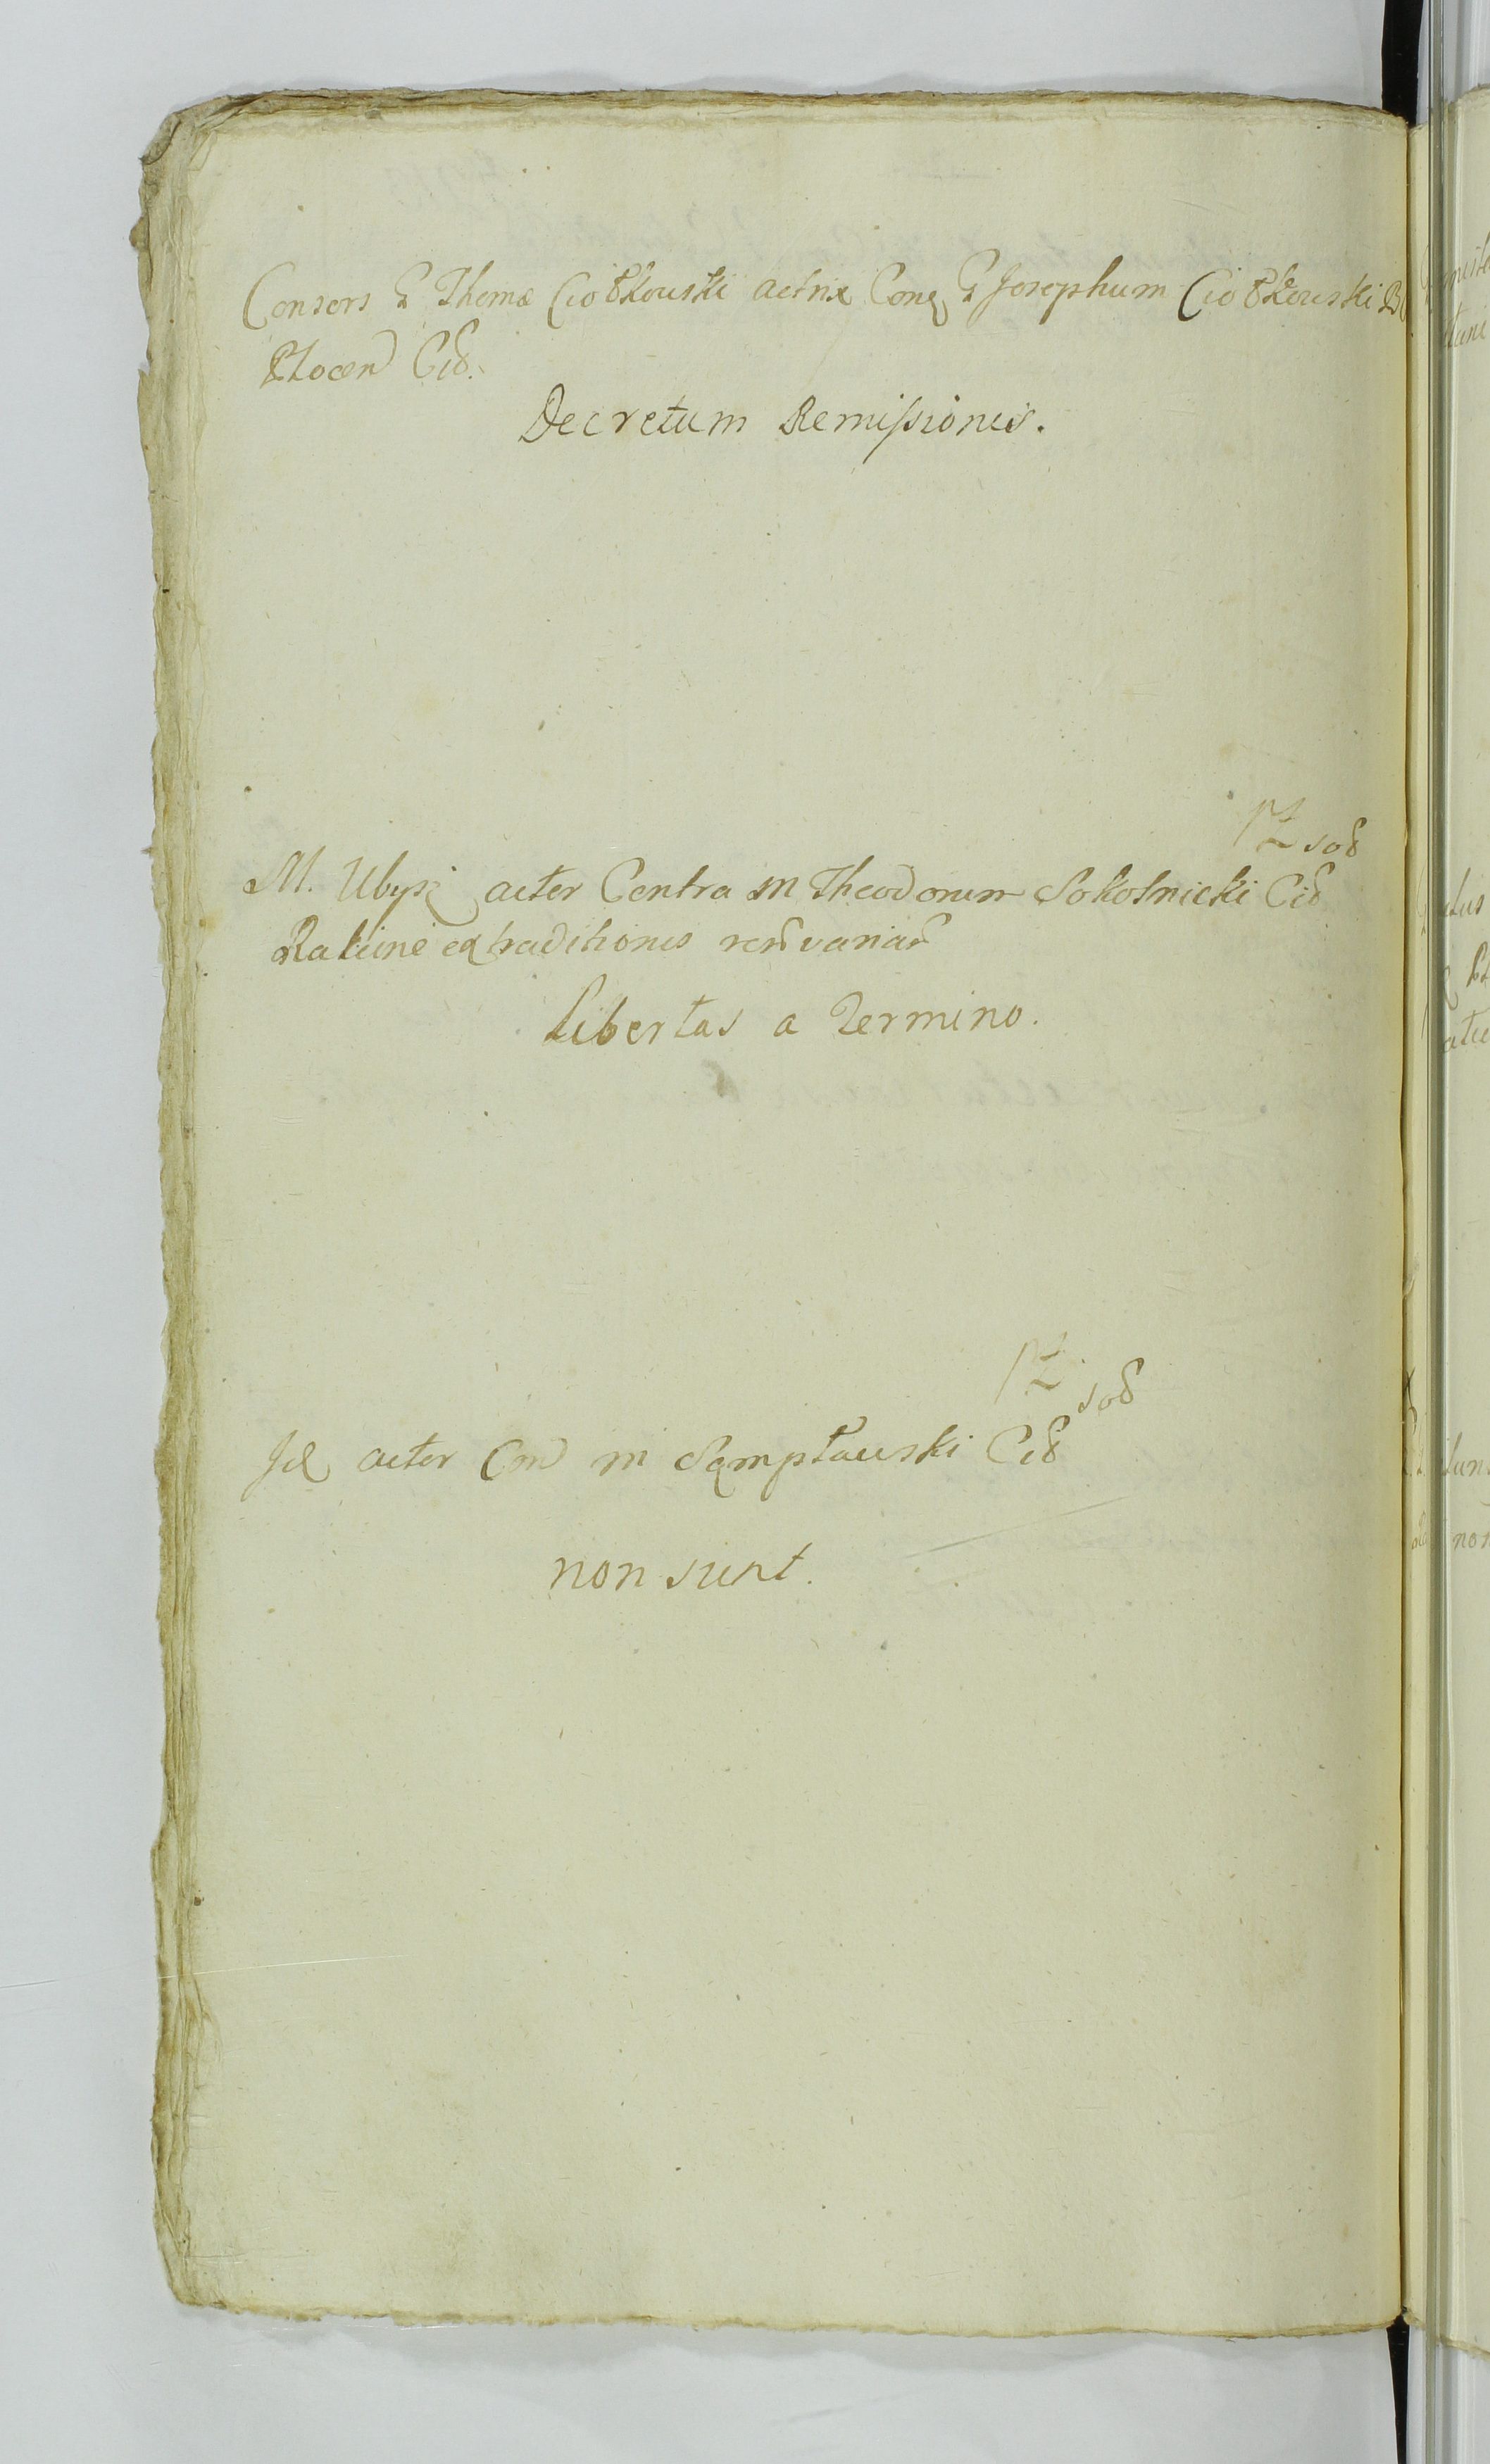 Consors G Thomæ Ciołkowski actrix Con G Josephum Ciołkowski
Plocen Cit.
Decretum Remissionis.
sol
M. Ubysz actor Contra M Theodorum Sokolnicki Cit
Ratiine extraditionis rerū variar
Libertas a Termino.
sol
Id actor Con M Sampławski Cit
non sunt.